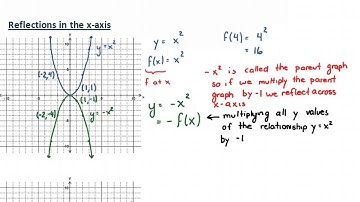 Reflections in the x-axis
y = x²
(-2,4)
(1,1)
(1,-1)
(-2,-4)
y = -x²
y = x²
f(x) = x²
f at x
y = -x²
= -f(x)
f(4) = 4²
= 16
- x² is called the parent graph
so if we multiply the parent
graph by -1 we reflect across
x-axis
← multiplying all y values
of the relationship y = x²
by -1